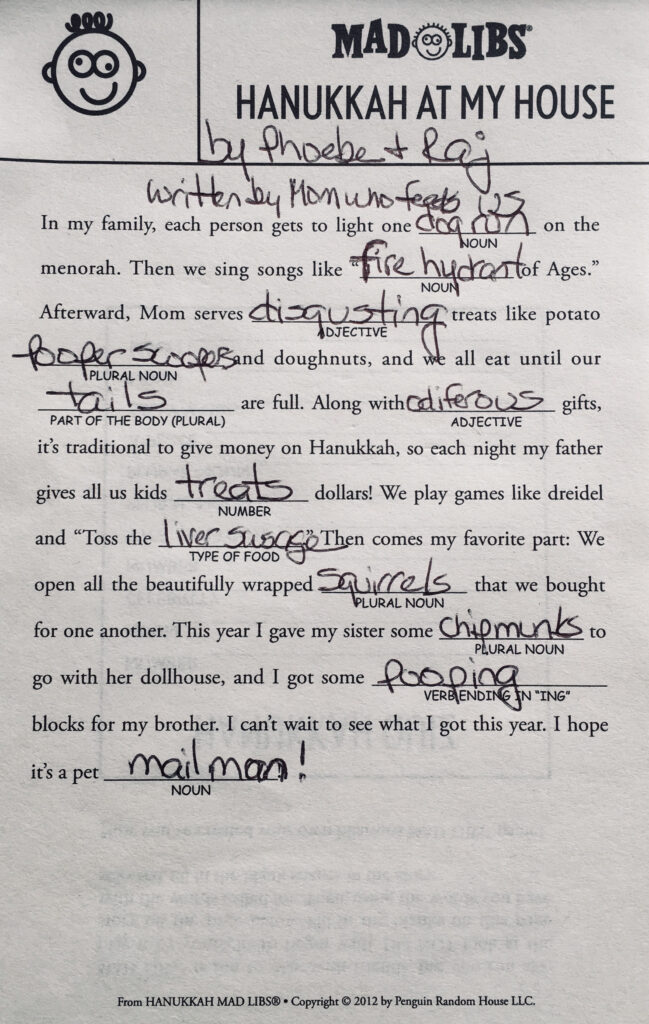 MAD LIBS®
HANUKKAH AT MY HOUSE
by Phoebe + Raj
written by Mom who feeds us
In my family, each person gets to light one dog run on the
NOUN
menorah. Then we sing songs like “fire hydrant of Ages.”
NOUN
Afterward, Mom serves disgusting treats like potato
ADJECTIVE
pooper scoops and doughnuts, and we all eat until our
PLURAL NOUN
tails are full. Along with odiferous gifts,
PART OF THE BODY (PLURAL) ADJECTIVE
it’s traditional to give money on Hanukkah, so each night my father
gives all us kids treats dollars! We play games like dreidel
NUMBER
and “Toss the liver susage.” Then comes my favorite part: We
TYPE OF FOOD
open all the beautifully wrapped squirrels that we bought
PLURAL NOUN
for one another. This year I gave my sister some chipmunks to
PLURAL NOUN
go with her dollhouse, and I got some pooping
VERB ENDING IN "ING"
blocks for my brother. I can’t wait to see what I got this year. I hope
it’s a pet mailman!
NOUN
From HANUKKAH MAD LIBS® • Copyright © 2012 by Penguin Random House LLC.